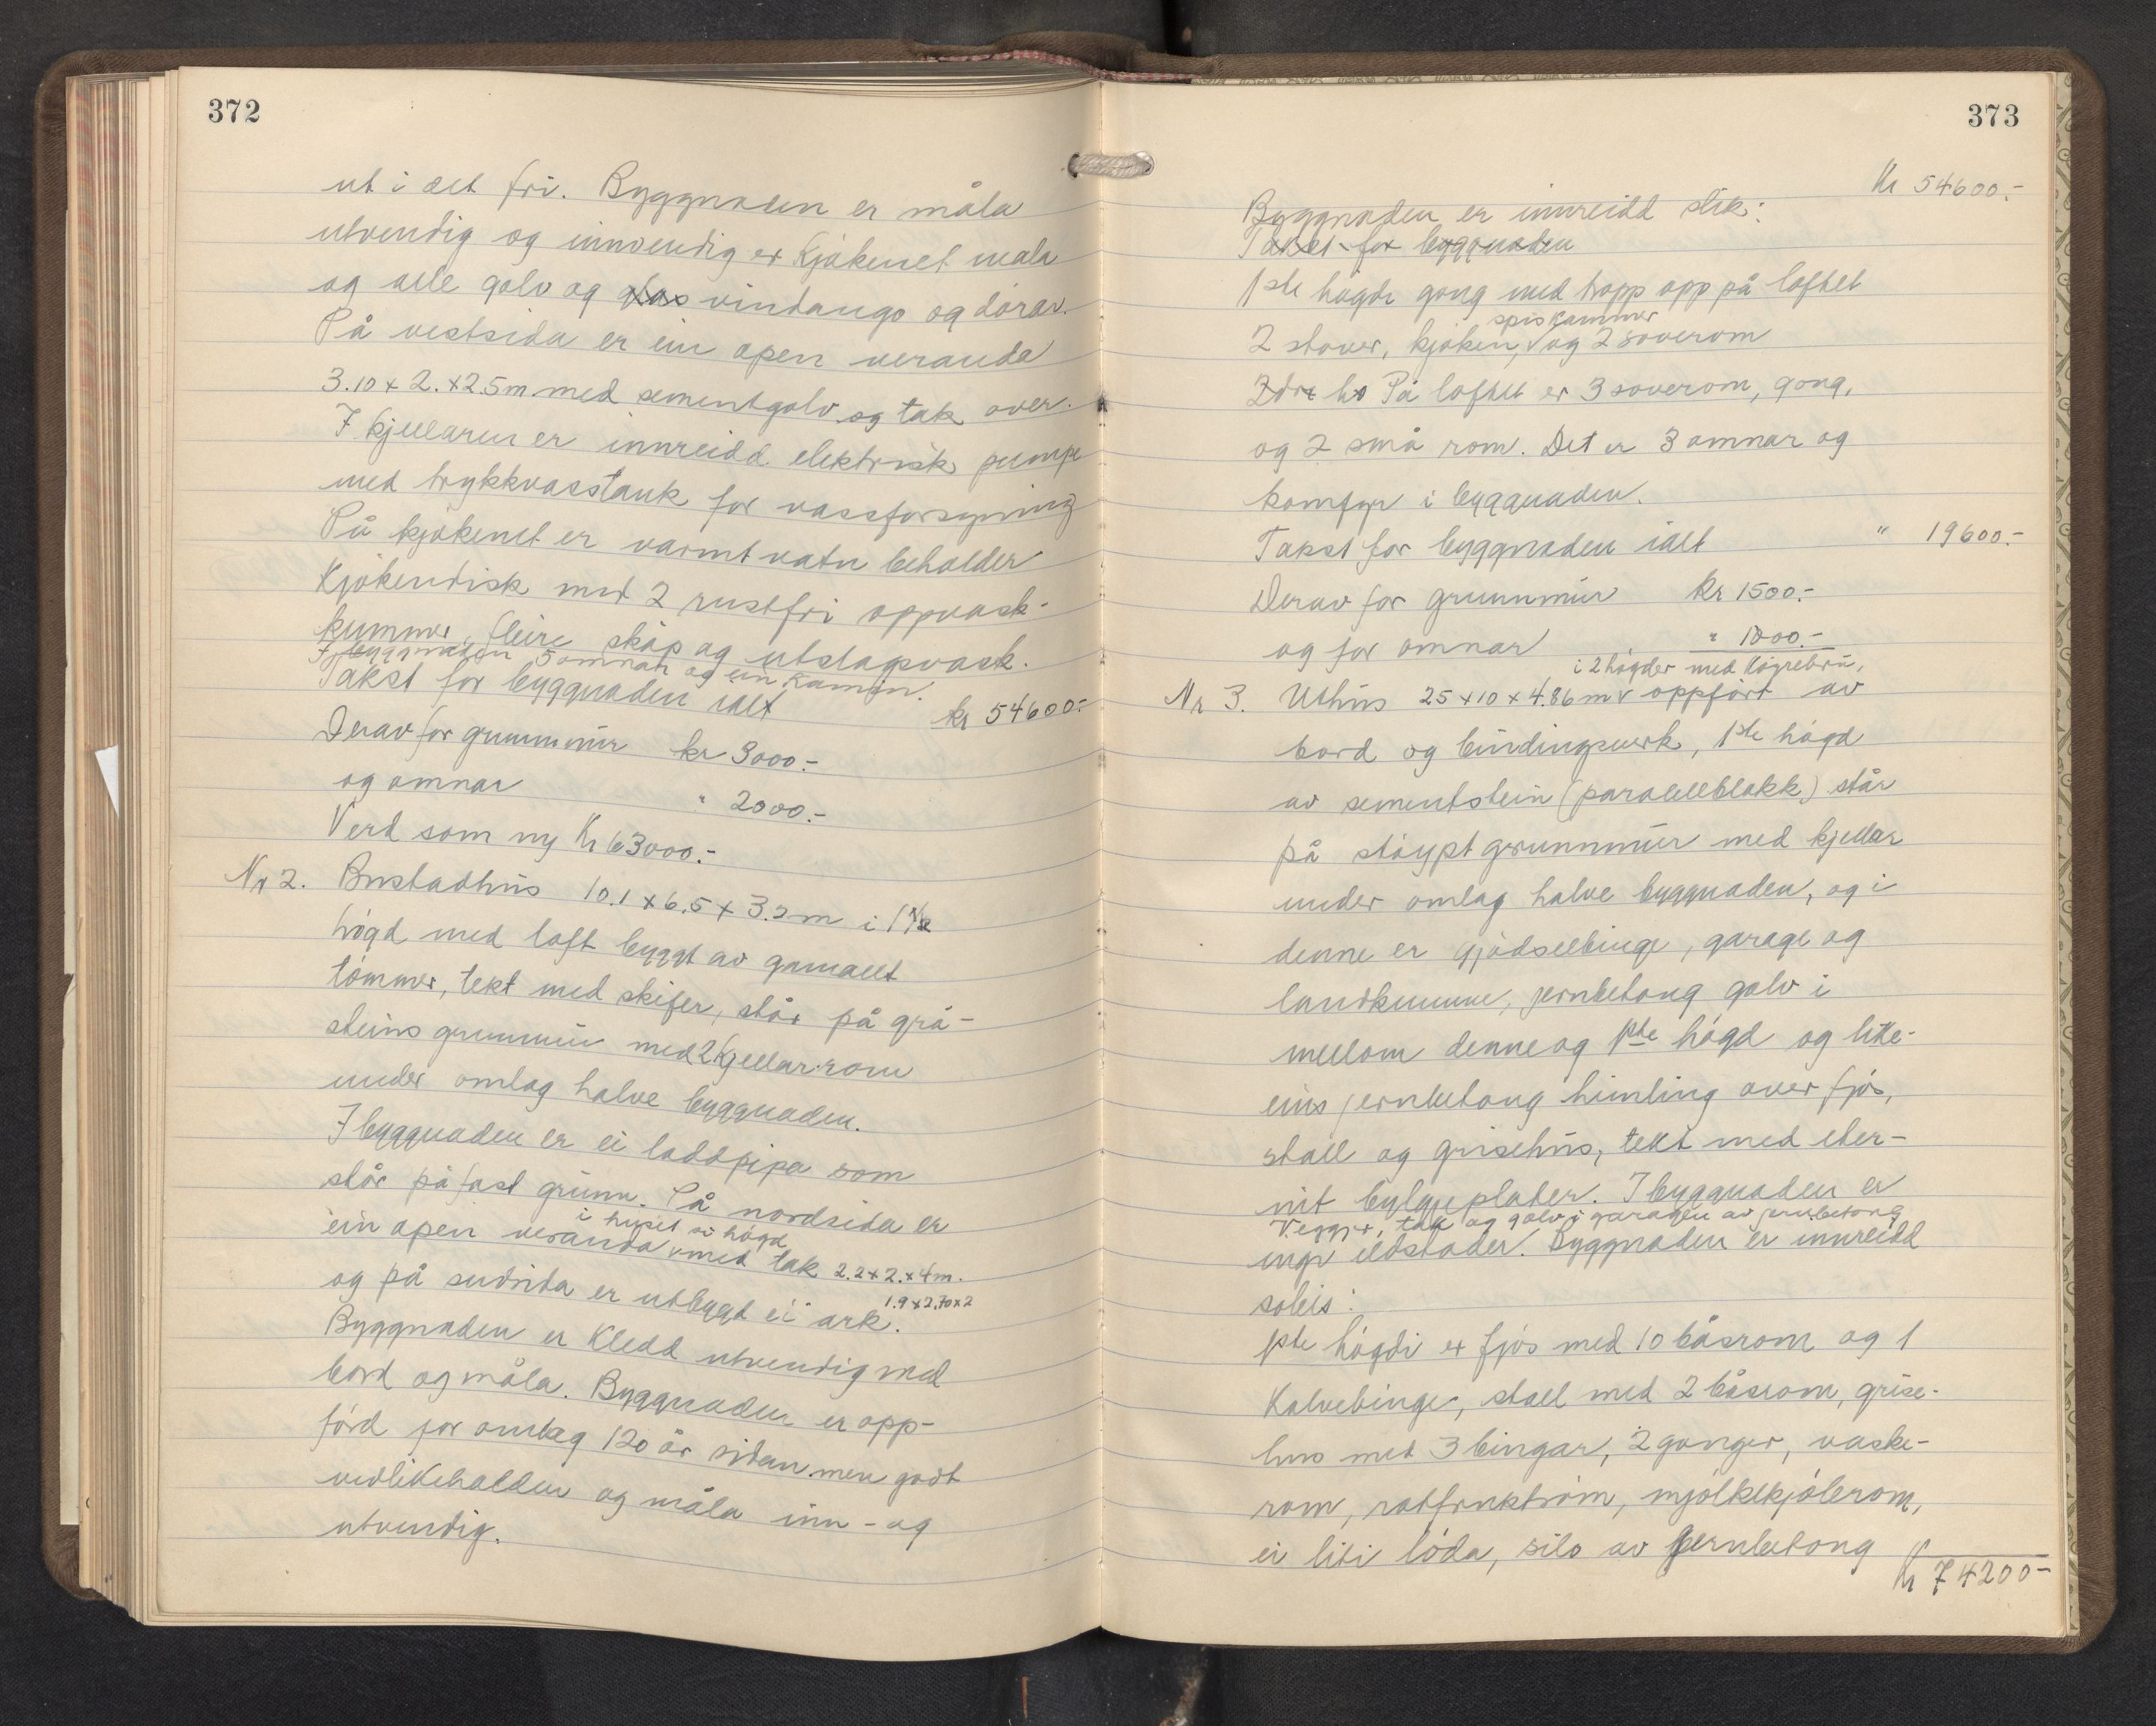 372
ut i det fri. Byggnaden er måla
utvendig og innvendig er kjøkenet måla
og alle golv og glas vindaugo og dørar.
På vestsida er ein open veranda
3.10 x 2. x 2.5 m med sementgolv og tak over.
I kjellaren er innreidd elektrisk pumpe
med trykkvasstank for vassforsyning
På kjøkenet er varmt vatn beholder
Kjøkendisk med 2 rustfri oppvask-
kummer, fleire skåp og utslagsvask.
I byggnaden 5 omnar og ein kamin.
Takst for byggnaden ialt kr 54600.-
Derav for grunnmur kr 3000.-
og omnar " 2000.-
Verd som ny Kr 63000.-
Nr 2. Bustadhus 10.1 x 6.5 x 3.2 m i 1 1/2
høgd med loft byggt av gamalt
tømmer, tekt med skifer, står på grå-
steins grunnmur med 2 kjellar-rom
under omlag halve byggnaden.
I byggnaden er ei loddpipa som
står på fast grunn. På nordsida er
i huset si høgd
ein open veranda v med tak 2.2 x 2. x 4 m.
og på sudsida er utbyggd ei ark. 1.9 x 2.70 x 2
Byggnaden er kledd utvendig med
bord og måla. Byggnaden er opp-
førd for omlag 120 år sidan men godt
vedlikehalden og måla inn- og
utvendig.
373
Kr 54600.-
Byggnaden er innreidd slik:
Takst for byggnaden
1ste høgde gong med trapp opp på loftet
spiskammer
2 stover, kjøken, v og 2 soverom
2dre hø På loftet er 3 soverom, gong,
og 2 små rom. Det er 3 omnar og
komfyr i byggnaden.
Takst for byggnaden ialt " 19600.-
Derav for grunnmur kr 1500.-
og for omnar " 1000.-
i 2 høgder med køyrebru,
Nr 3. Uthus 25 x 10 x 4.86 m v oppført av
bord og bindingsverk, 1ste høgd
av sementstein (paralellblokk) står
på støypt grunnmur med kjellar
under omlag halve byggnaden, og i
denne er gjødselbinge, garage og
landkumme, jernbetong golv i
mellom denne og 1ste høgd og like-
eins jernbetong himling over fjøs,
stall og grisehus, tekt med eter-
nit bylgjeplater. I byggnaden er
Veggjer, tak og golv i garagen av jernbetong
inge eldstader. Byggnaden er innreidd
soleis:
1ste høgdi er fjøs med 10 båsrom og 1
Kalvebinge, stall med 2 båsrom, grise-
hus med 3 bingar, 2 gonger, vaske-
rom, rotfruktrom, mjølkekjølerom,
ei liti løda, silo av jernbetong
Kr 74200-